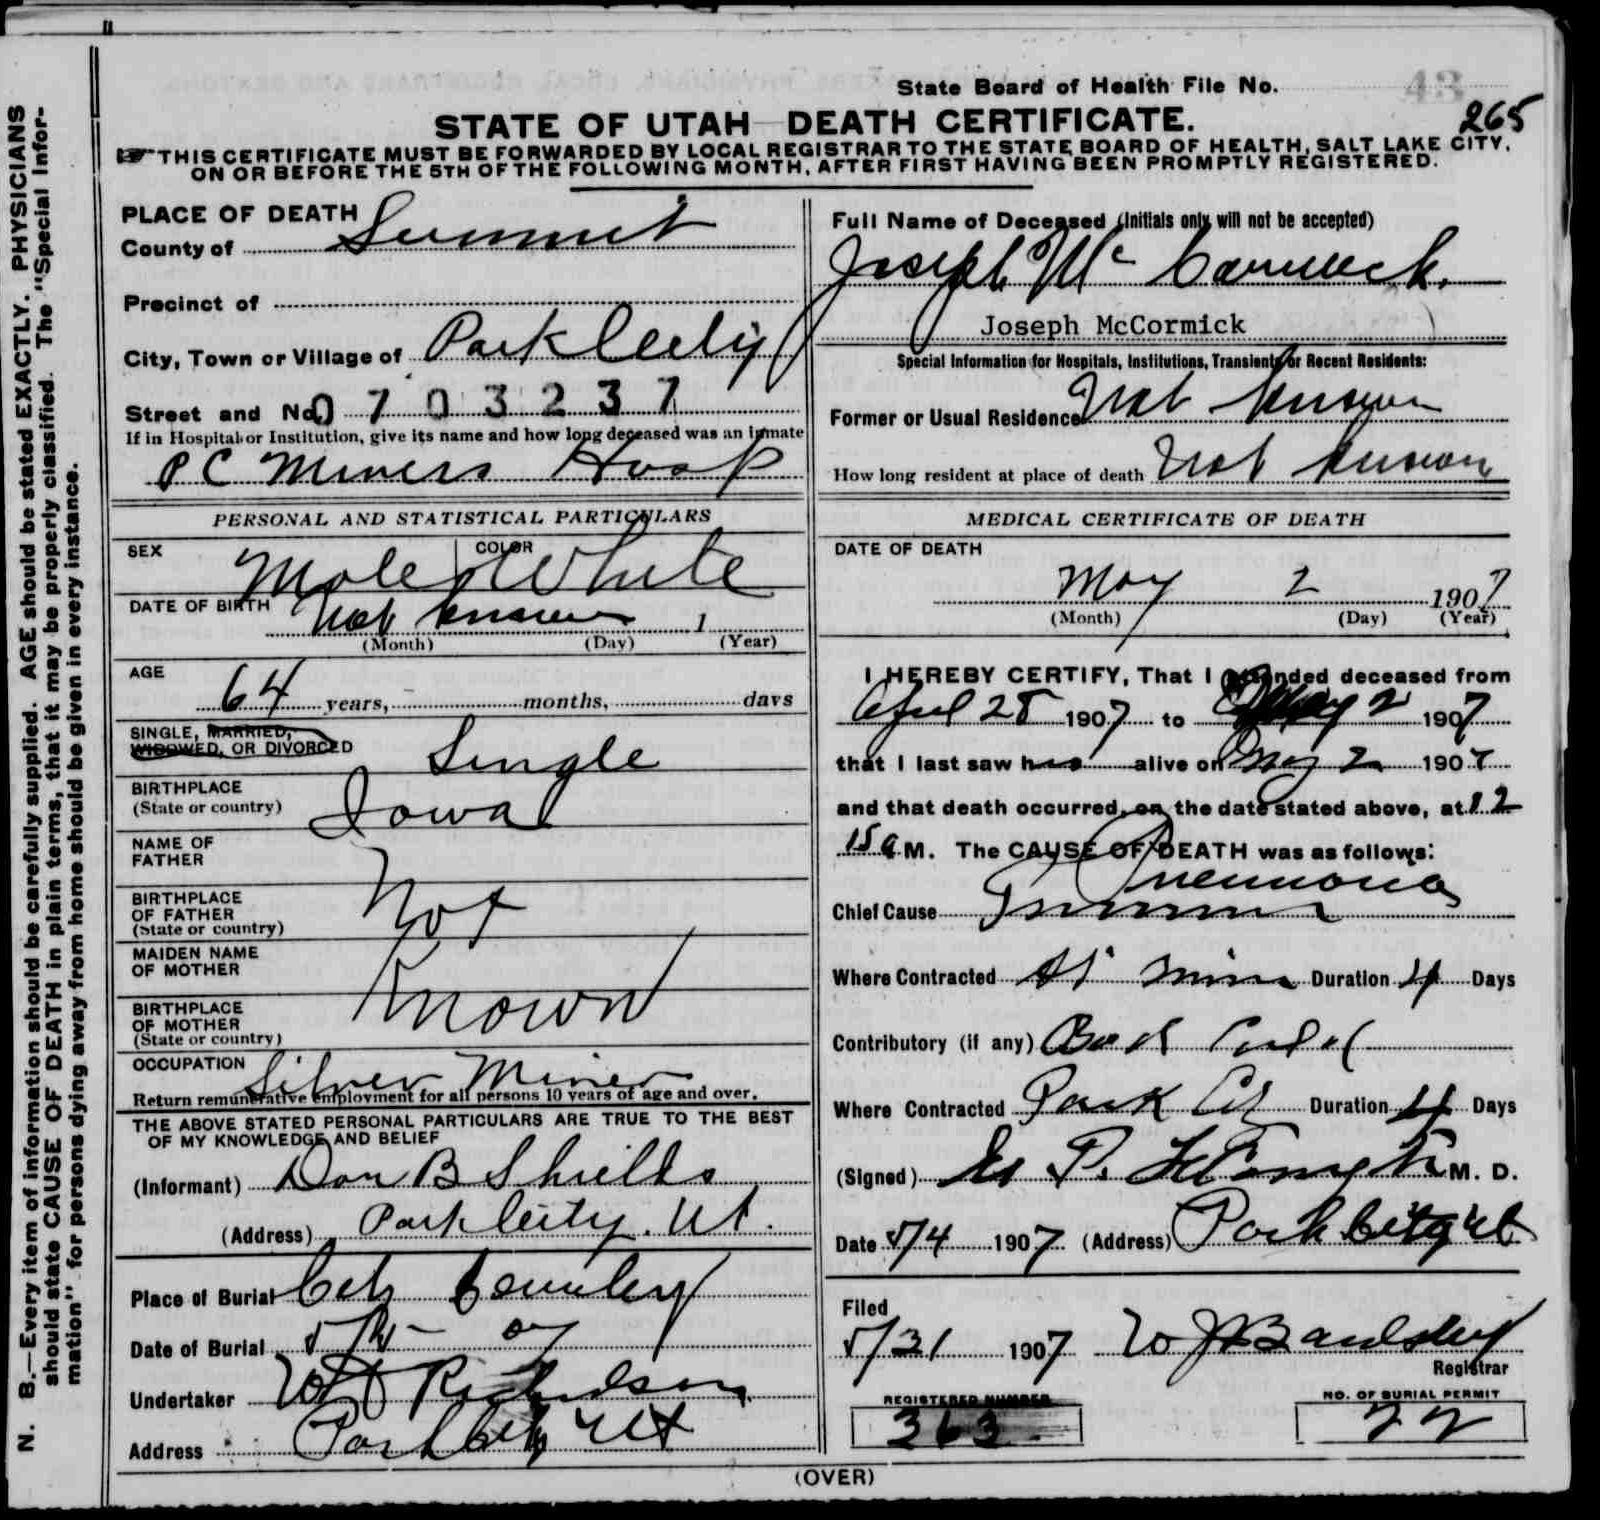 State Board of Health File No.
43
265
STATE OF UTAH DEATH CERTIFICATE.
THIS CERTIFICATE MUST BE FORWARDED BY LOCAL REGISTRAR TO THE STATE BOARD OF HEALTH, SALT LAKE CITY,
ON OR BEFORE THE 5TH OF THE FOLLOWING MONTH, AFTER FIRST HAVING BEEN PROMPTLY REGISTERED.
N. B.—Every item of information should be carefully supplied. AGE should be stated EXACTLY. PHYSICIANS
should state CAUSE OF DEATH in plain terms, that it may be properly classified. The "Special Infor-
mation" for persons dying away from home should be given in every instance.
PLACE OF DEATH
County of Summit
Precinct of
City, Town or Village of Park City
Street and No. 0703237
If in Hospital or Institution, give its name and how long deceased was an inmate
P C Miners Hosp
PERSONAL AND STATISTICAL PARTICULARS
SEX Male COLOR White
DATE OF BIRTH Not known 1
(Month) (Day) (Year)
AGE
64 years, months, days
SINGLE, MARRIED,
WIDOWED, OR DIVORCED Single
BIRTHPLACE
(State or country) Iowa
NAME OF
FATHER
BIRTHPLACE
OF FATHER
(State or country) Not
MAIDEN NAME
OF MOTHER
BIRTHPLACE
OF MOTHER
(State or country) Known
OCCUPATION Silver Miner
Return remunerative employment for all persons 10 years of age and over.
THE ABOVE STATED PERSONAL PARTICULARS ARE TRUE TO THE BEST
OF MY KNOWLEDGE AND BELIEF
(Informant) Don B Shields
(Address) Park City. Ut.
Place of Burial City Cemetery
Date of Burial
Undertaker Richardson
Address Park City Ut
Full Name of Deceased (Initials only will not be accepted)
Joseph Mc Cormick.
Joseph McCormick
Special Information for Hospitals, Institutions, Transients or Recent Residents:
Former or Usual Residence Not known
How long resident at place of death Not known
MEDICAL CERTIFICATE OF DEATH
DATE OF DEATH
May 2 1907
(Month) (Day) (Year)
I HEREBY CERTIFY, That I attended deceased from
April 28 1907 to May 2 1907
that I last saw him alive on May 2 1907
and that death occurred, on the date stated above, at 12
15 a M. The CAUSE OF DEATH was as follows:
Pneumonia
Chief Cause
Where Contracted At mine Duration 4 Days
Contributory (if any) Bad Cold
Where Contracted Park City Duration 4 Days
(Signed) M. D.
Date 5/4 1907 (Address) Park City Ut
Filed
5/31 1907 W J Bardsley
Registrar
REGISTERED NUMBER
363
NO. OF BURIAL PERMIT
22
(OVER)